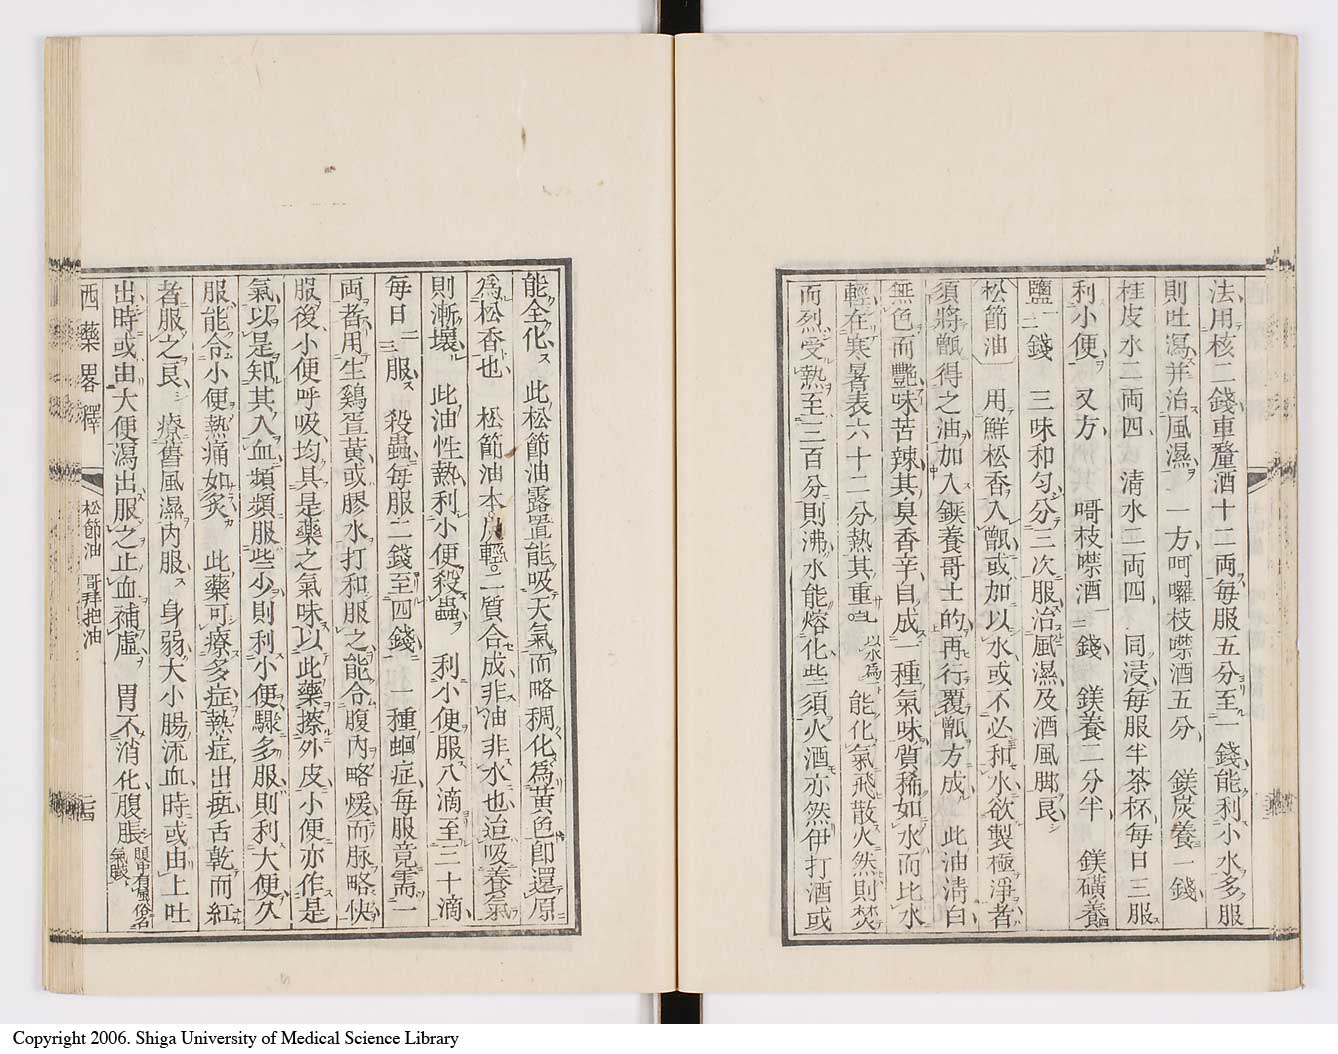 法用核二錢重釐酒十二両每服五分至一錢能利小水多服
則吐瀉并治風濕 一方呵囉枝噤酒五分 鎂炭養一錢
桂皮水二両四 清水二両四 同浸每服半茶杯每日三服
利小便 又方 哥枝噤酒一錢 鎂養二分半 鎂磺養四
鹽一錢 三味和匀分三次服治風濕及酒風脚良
松節油 用鮮松香入甑或加以水或不必和水欲製極淨者
須將甑得之油加入鋏養哥士的再行覆甑方成 此油清白
無色而艷味苦辣其臭香辛自成一種氣味質稀如水而比水
輕在寒暑表六十二分熱其重 以水為 能化氣飛散火然則焚
而烈受熱至三百分則沸水能熔化些須火酒亦然伊打酒或
能全化 此松節油露置能吸天氣而略稠化為黃色即還原
為松香也 松節油本 輕 二質合成非油非水也迨吸養氣
則漸壞 此油性熱利小便殺蟲 利小便服八滴至二十滴
每日二三服 殺蟲每服二錢至四錢 一種蛔症每服竟需一
両者用生鷄蛋黃或膠水打和服之能令腹內略煖而脉略快
服後小便呼吸均具是藥之氣味以此藥擦外皮小便亦作是
氣以是知其入血頻頻服些少則利小便驟多服則利大便久
服能令小便熱痛如炙 此藥可療多症熱症出 舌乾而紅
者服之良 療舊風濕內服 身弱大小腸流血時或由上吐
出時或由大便瀉出服之止血補虛 胃不消化腹脹 腹中有風俗名氣臌
西藥畧釋 松節油 哥拜把油